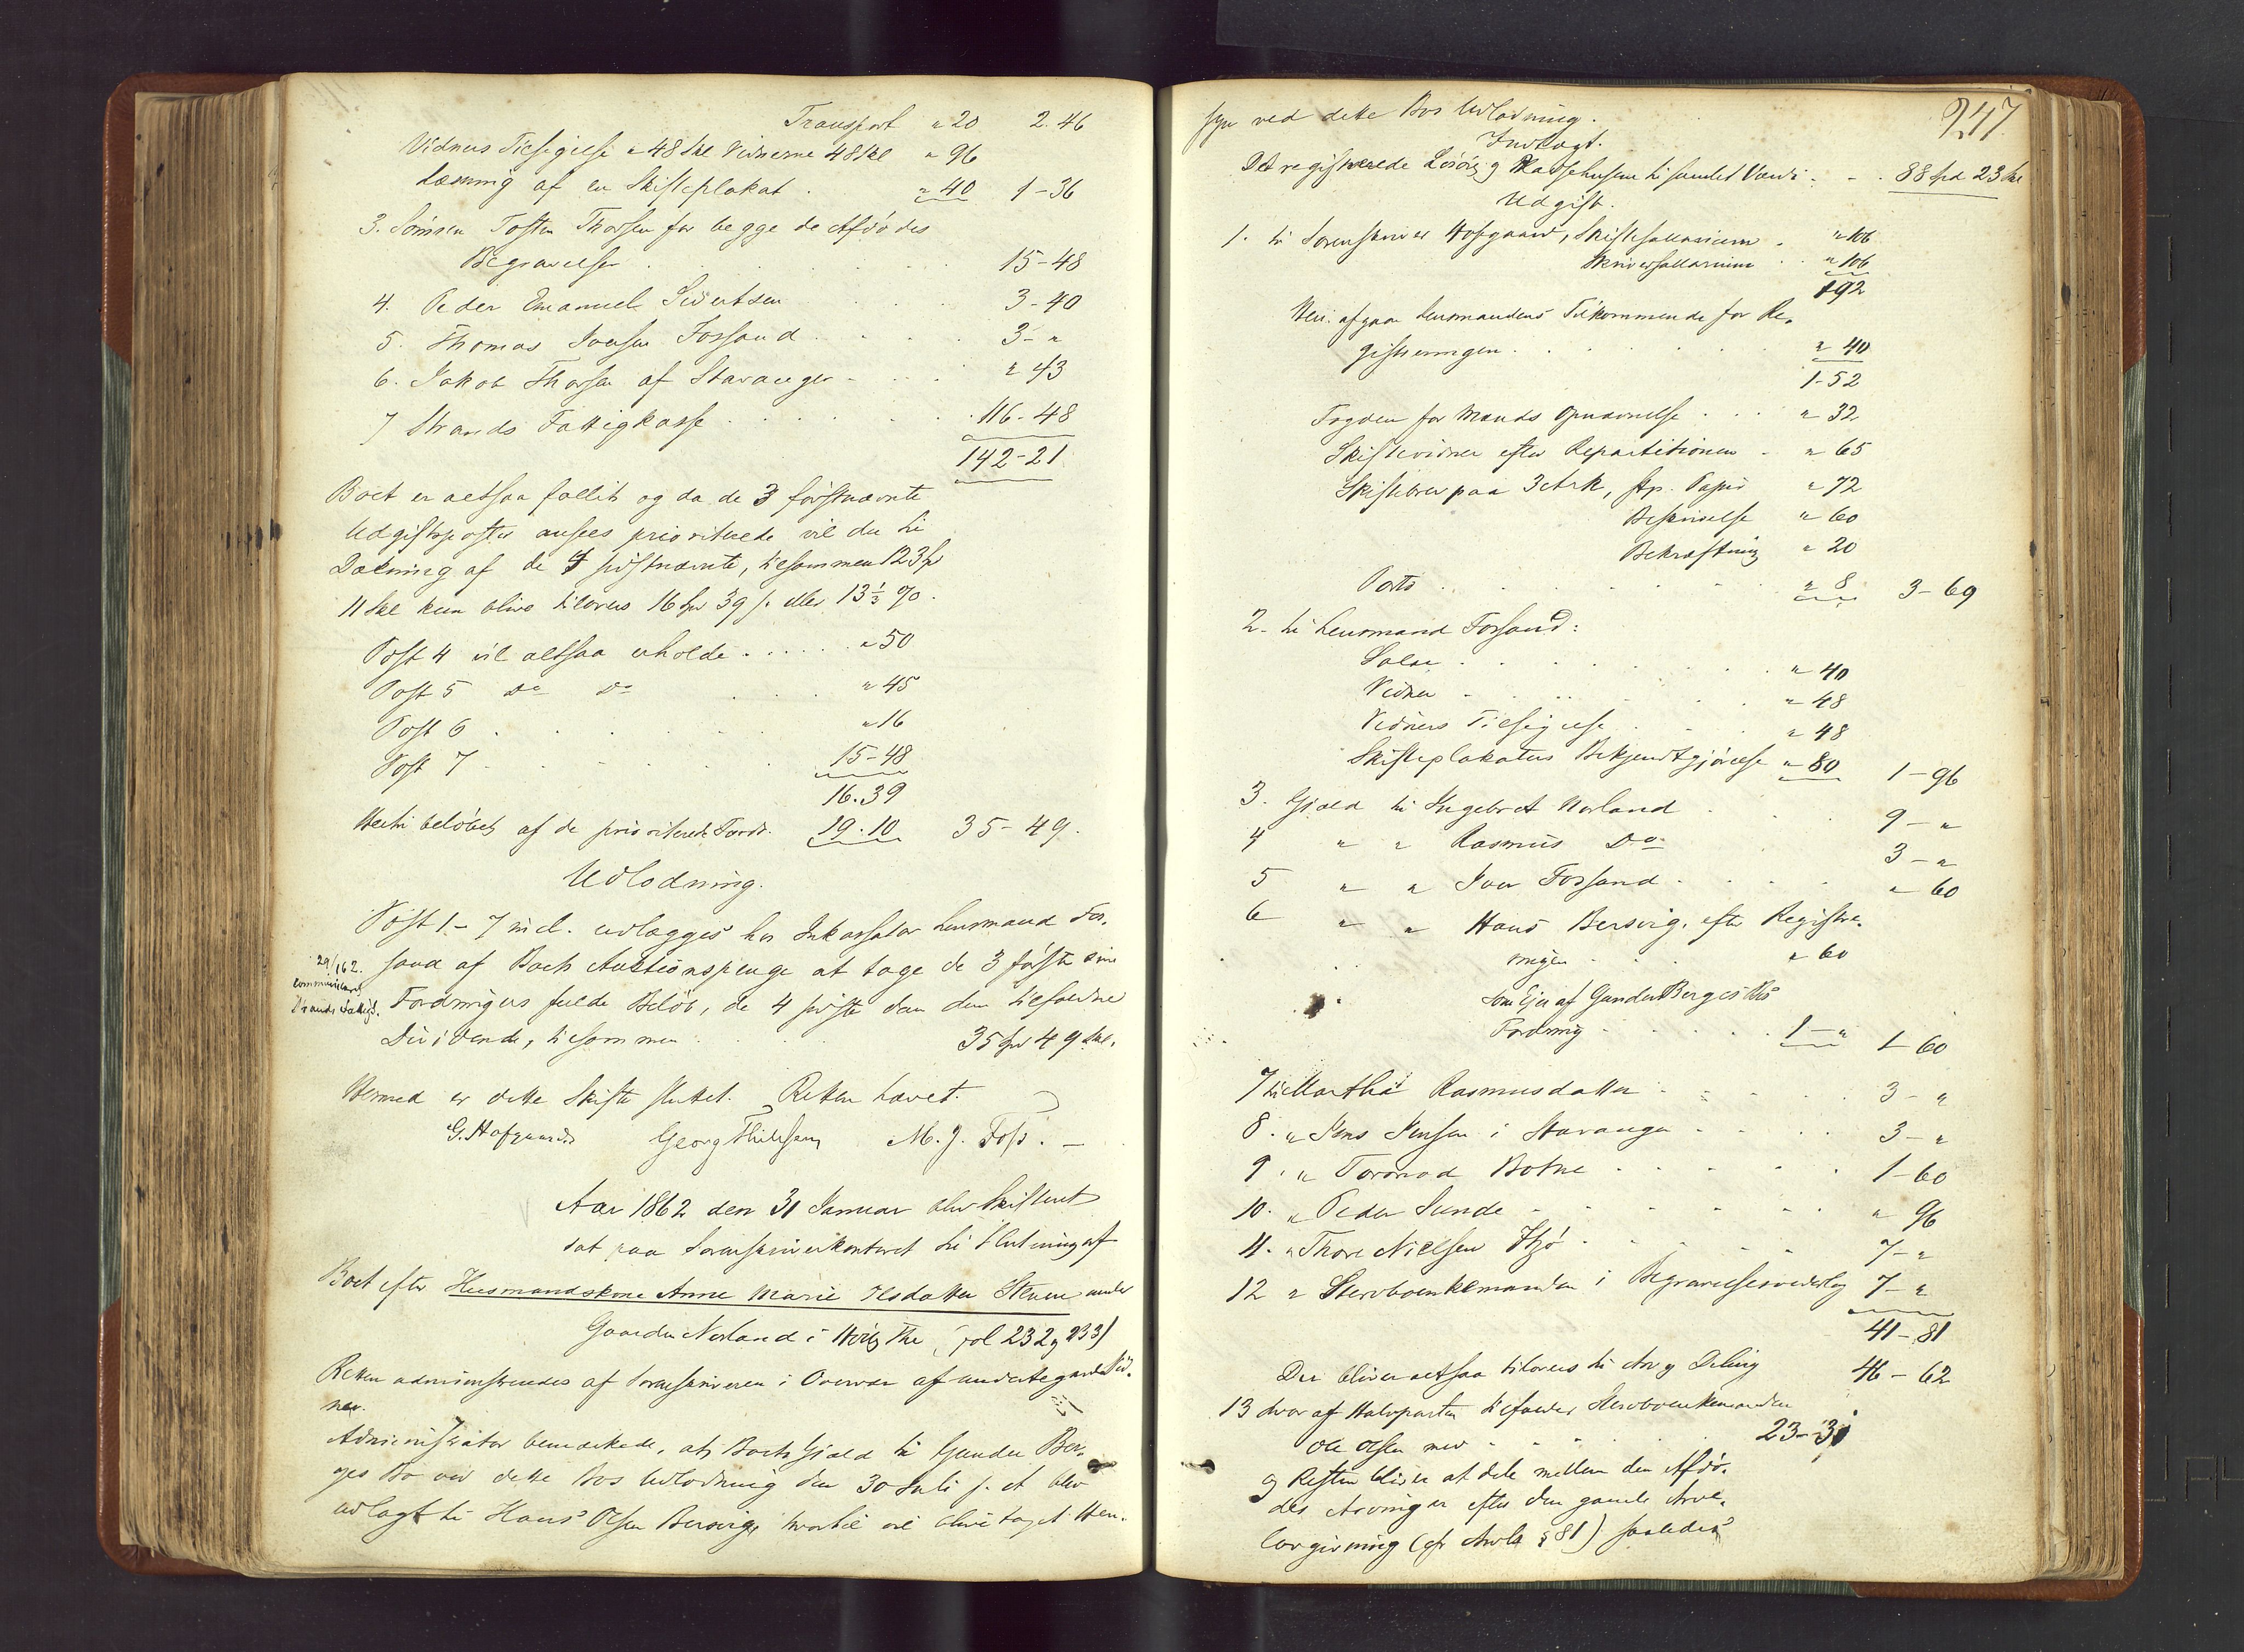 Transport " 20 2. 46
Vidners Tilsigelse " 48 Skl Vidnerne 48 Skl " 96
Læsning af en Skifteplakat . " 40 1-36
3. Tosten Thorsen for begge de Afdødes
Begravelser 15-48
4. Peder Emanuel Sivertsen 3-40
5. Thomas Iversen Fossand 3- "
6. Jakob Thorsen af Stavanger " 43
7 Strands Fattigkasse 116-48
142-21
Boet er altsaa fallit og da de 3 förstnævnte
Udgiftsposter ansees prioriterede vil der til
Dækning af de 4 sidstnævnte, tilsammen 123 Spd
11 Skl kun blive tilovers 16 Spd 39 s. eller 13 1/3 %.
Post 4 vil altsaa erholde " 50
Post 5 Do Do " 45
Post 6 " 16
Post 7 15-48
16.39
Hertil beløbet af de prioriterede Fordr. 19.10 35-49.
Udlodning.
Post 1-7 incl. udlægges hos Inkassator Lensmand Fos-
sand af Boets Auktionspenge at tage de 3 første sine
29/1 62.
Fordringers fulde Beløb, de 4 sidste den dem tilfaldne
Dividende, tilsammen 35 Spd 49 Skl.
Hermed er dette Skifte sluttet. Retten hævet.
G. Hofgaard Georg Thilesen M. J. Foss.
Aar 1862 den 31 Januar blev Skifteret
sat paa Sorenskriverkontoret til Slutning af
Boet efter Husmandskone Anne Marie Olsdatter Steene under
Gaarden Norland i Höle The, (fol 232 og 233)
Retten administreredes af Sorenskriveren i Overvær af undertegnede Vid-
ner.
Administrator bemærkede, at Boets Gjæld til Gunder Ber-
ges Bo ved dette Bos Udlodning den 30 Juli f. A blev
udlagt til Hans Olsen Bersvig, hvortil vil blive taget Hen-
247
syn ved dette Bos Udlodning.
Indtægt.
Det registrerede Løsöre og Pladsehusene til samlet Værdi 88 Spd 23 Skl
Udgift.
1. til Sorenskriver Hofgaard, Skiftesallarium " 106
Skriversallarium " 106
192
Heri afgaar Lensmandens Tilkommende for Re-
gistreringen " 40
1-52
Fogden for Mænds Opnævnelse " 32
Skiftevidner efter Repartitionen " 65
Skiftebrev paa 3 Ark, stp. Papir " 72
Beskrivelse " 60
Bekræftning " 20
Porto " 8 3-69
2. til Lensmand Fossand:
Salær " 40
Vidner " 48
Vidners Tilsigelse " 48
Skifteplakatens Bekjendtgjörelse " 80 1-96
3. Gjæld til Ingebret Norland 9- "
4 " " Rasmus Do 3- "
5 " " Iver Fossand " 60
6 " " Hans Bersvig, efter Registre-
ringen " 60
som Eier af Gunder Berges Bos
Fordring 1- " 1-60
7 til Martha Rasmusdatter 3- "
8. " Jens Jensen i Stavanger 3- "
9. " Tormod Botne 1-60
10. " Peder Sunde " 96
11. " Thore Nielsen Idsö 7- "
12 " Stervboenkemanden i Begravelsesvederlag 7- "
41-81
Der bliver altsaa tilovers til Arv og Deling 46-62
13 hvoraf Halvparten tilfalder Stervboenkemanden
Ole Olsen med 23-31
og Resten bliver at dele mellem den Afdö-
des Arvinger efter den gamle Arve-
lovgivning (cfr Arvl. § 81) saaledes